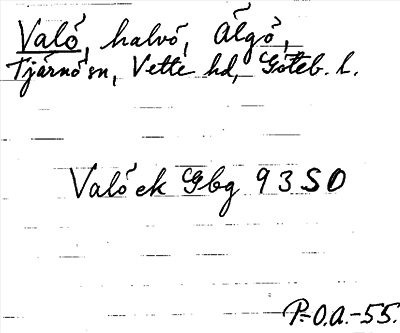 Valö, halvö, Älgö,
Tjärnö sn, Vette hd, Göteb. l.
Valö ek Gbg 93 SO
P.-O.A.-55.